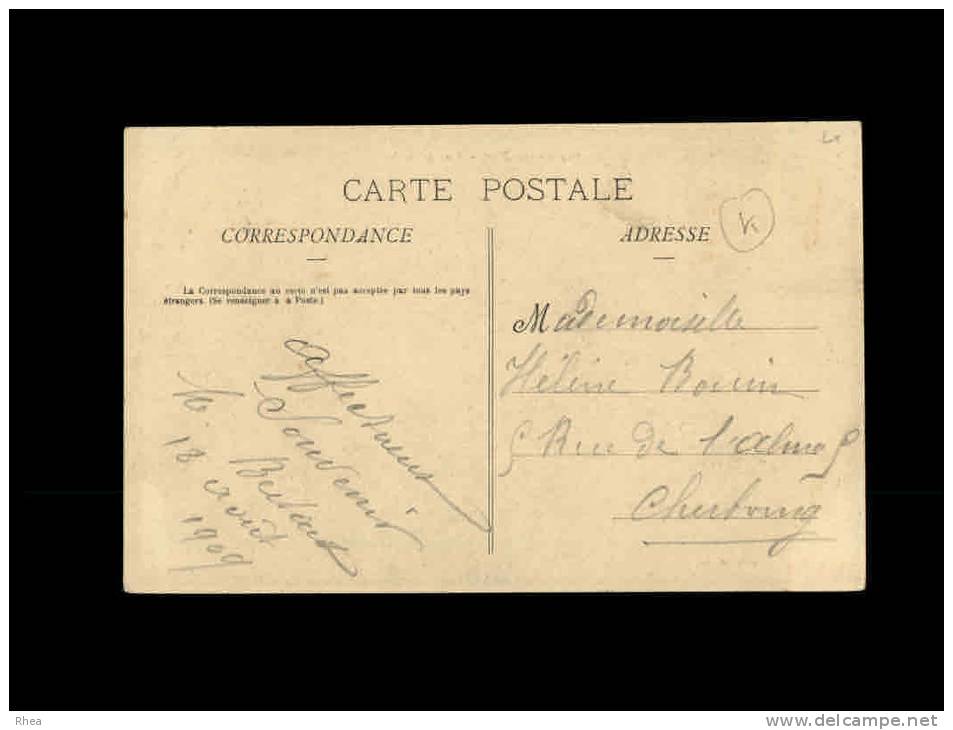 CARTE POSTALE
CORRESPONDANCE
La Correspondance au carto n'est pas acceptée par tous les pays
étrangers. (Se renseigner à a Poste.)
Affectueux
Souvenir
le 18 août 1909
ADRESSE
Mademoiselle
Hélène
Rue de l'Alma
Cherbourg
Rhea
www.delcampe.net